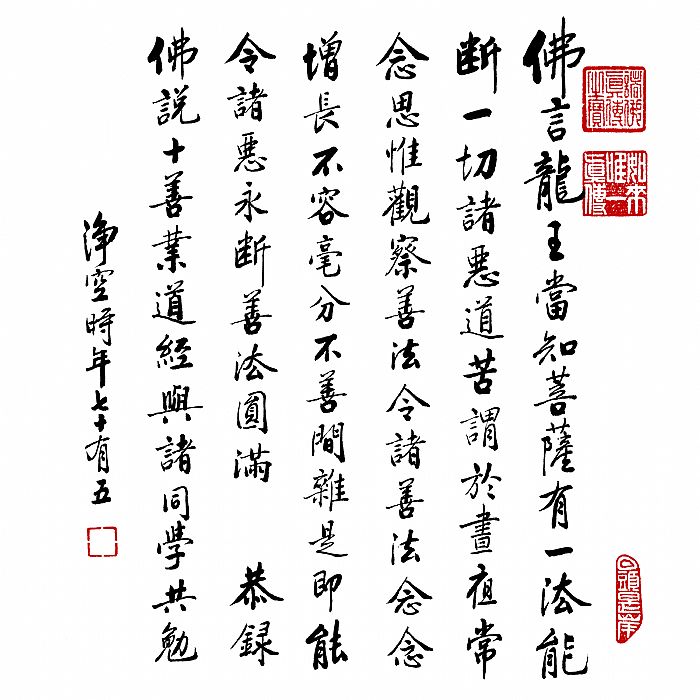 諸佛真傳之寶
如來唯一真傳
佛言龍王當知菩薩有一法能
断一切諸惡道苦謂於晝夜常
念思惟觀察善法令諸善法念念
增長不容毫分不善間雜是即能
令諸惡永断善法圓滿 恭録
佛說十善業道經與諸同學共勉
淨空時年七十有五
回頭是岸